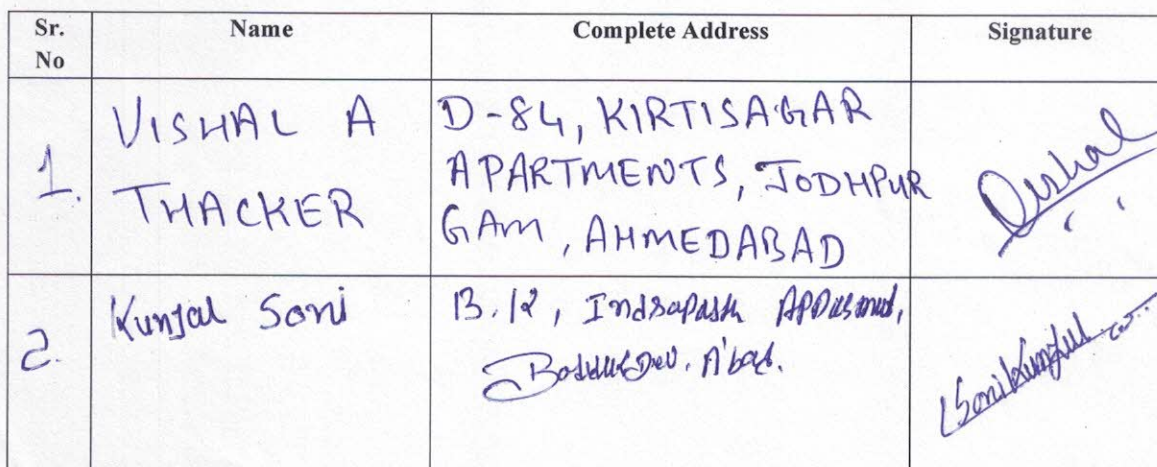 Sr. No
Name
Complete Address
Signature
1.
VISHAL A
THACKER
D-84, KIRTISAGAR
APARTMENTS, JODHPUR
GAM, AHMEDABAD
Vishal
2.
Kunjal Soni
B.12,
A'bad.
Soni Kunjal